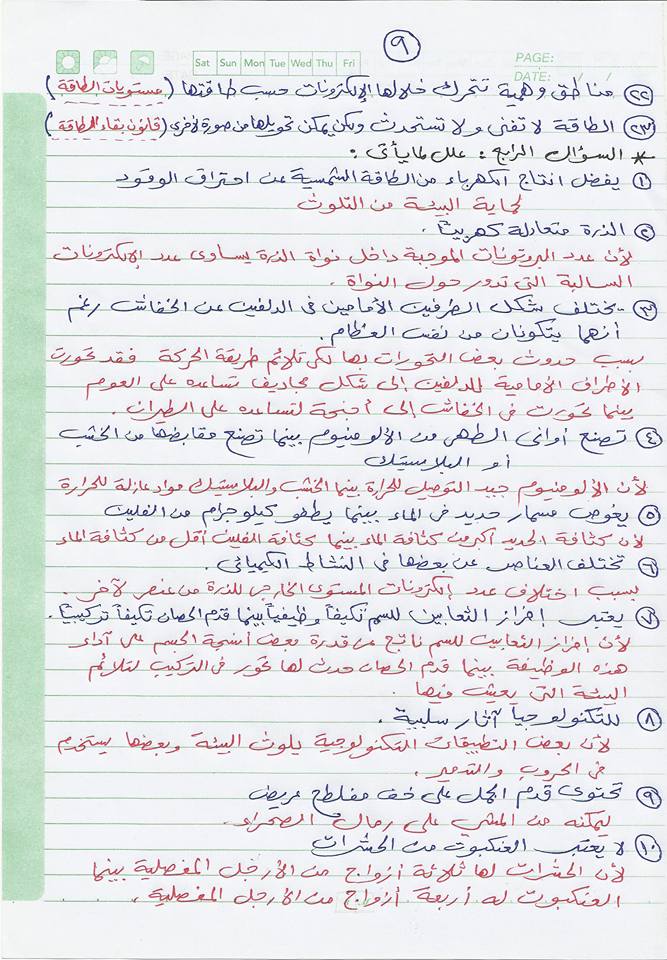 ٩
Sat Sun Mon Tue Wed Thu Fri
PAGE:
DATE: / /
٢٢ مناطق وهمية تتحرك خلالها الإلكترونات حسب طاقتها (مستويات الطاقة)
٢٣ الطاقة لا تفنى ولا تستحدث ولكن يمكن تحويلها من صورة لأخرى (قانون بقاء الطاقة)
* السؤال الرابع : علل لما يأتى :
١ يفضل انتاج الكهرباء من الطاقة الشمسية عن احتراق الوقود
لحماية البيئة من التلوث
٢ الذرة متعادلة كهربيًا .
لأن عدد البروتونات الموجبة داخل نواة الذرة يساوى عدد الإلكترونات
السالبة التى تدور حول النواة .
٣ يختلف شكل الطرفين الأماميين فى الدلفين عن الخفاش رغم
أنهما يتكونان من نفس العظام .
بسبب حدوث بعض التحورات بها لكى تلائم طريقة الحركة فقد تحورت
الأطراف الأمامية للدلفين إلى شكل مجاديف تساعده على العوم
بينما تحورت فى الخفاش إلى أجنحة لتساعده على الطيران .
٤ تصنع أوانى الطهى من الألومنيوم بينما تصنع مقابضها من الخشب
أو البلاستيك
لأن الألومنيوم جيد التوصيل للحرارة بينما الخشب والبلاستيك مواد عازلة للحرارة
٥ يغوص مسمار حديد فى الماء بينما يطفو كيلوجرام من الفلين
لأن كثافة الحديد أكبر من كثافة الماء بينما كثافة الفلين أقل من كثافة الماء
٦ تختلف العناصر عن بعضها فى النشاط الكيميائى .
بسبب اختلاف عدد إلكترونات المستوى الخارجى للذرة من عنصر لآخر .
٧ يعتبر إفراز الثعابين للسم تكيفاً وظيفياً بينما قدم الحصان تكيفاً تركيبياً .
لأن إفراز الثعابين للسم ناتج من قدرة بعض أنسجة الجسم على أداء
هذه الوظيفة بينما قدم الحصان حدث لها تحور فى التركيب لتلائم
البيئة التى يعيش فيها .
٨ للتكنولوجيا آثار سلبية .
لأن بعض التطبيقات التكنولوجية يلوث البيئة وبعضها يستخدم
فى الحروب والتدمير .
٩ تحتوى قدم الجمل على خف مفلطح عريض
ليمكنه من المشي على رمال الصحراء .
١٠ لا يعتبر العنكبوت من الحشرات
لأن الحشرات لها ثلاثة أزواج من الأرجل المفصلية بينما
العنكبوت له أربعة أزواج من الأرجل المفصلية .